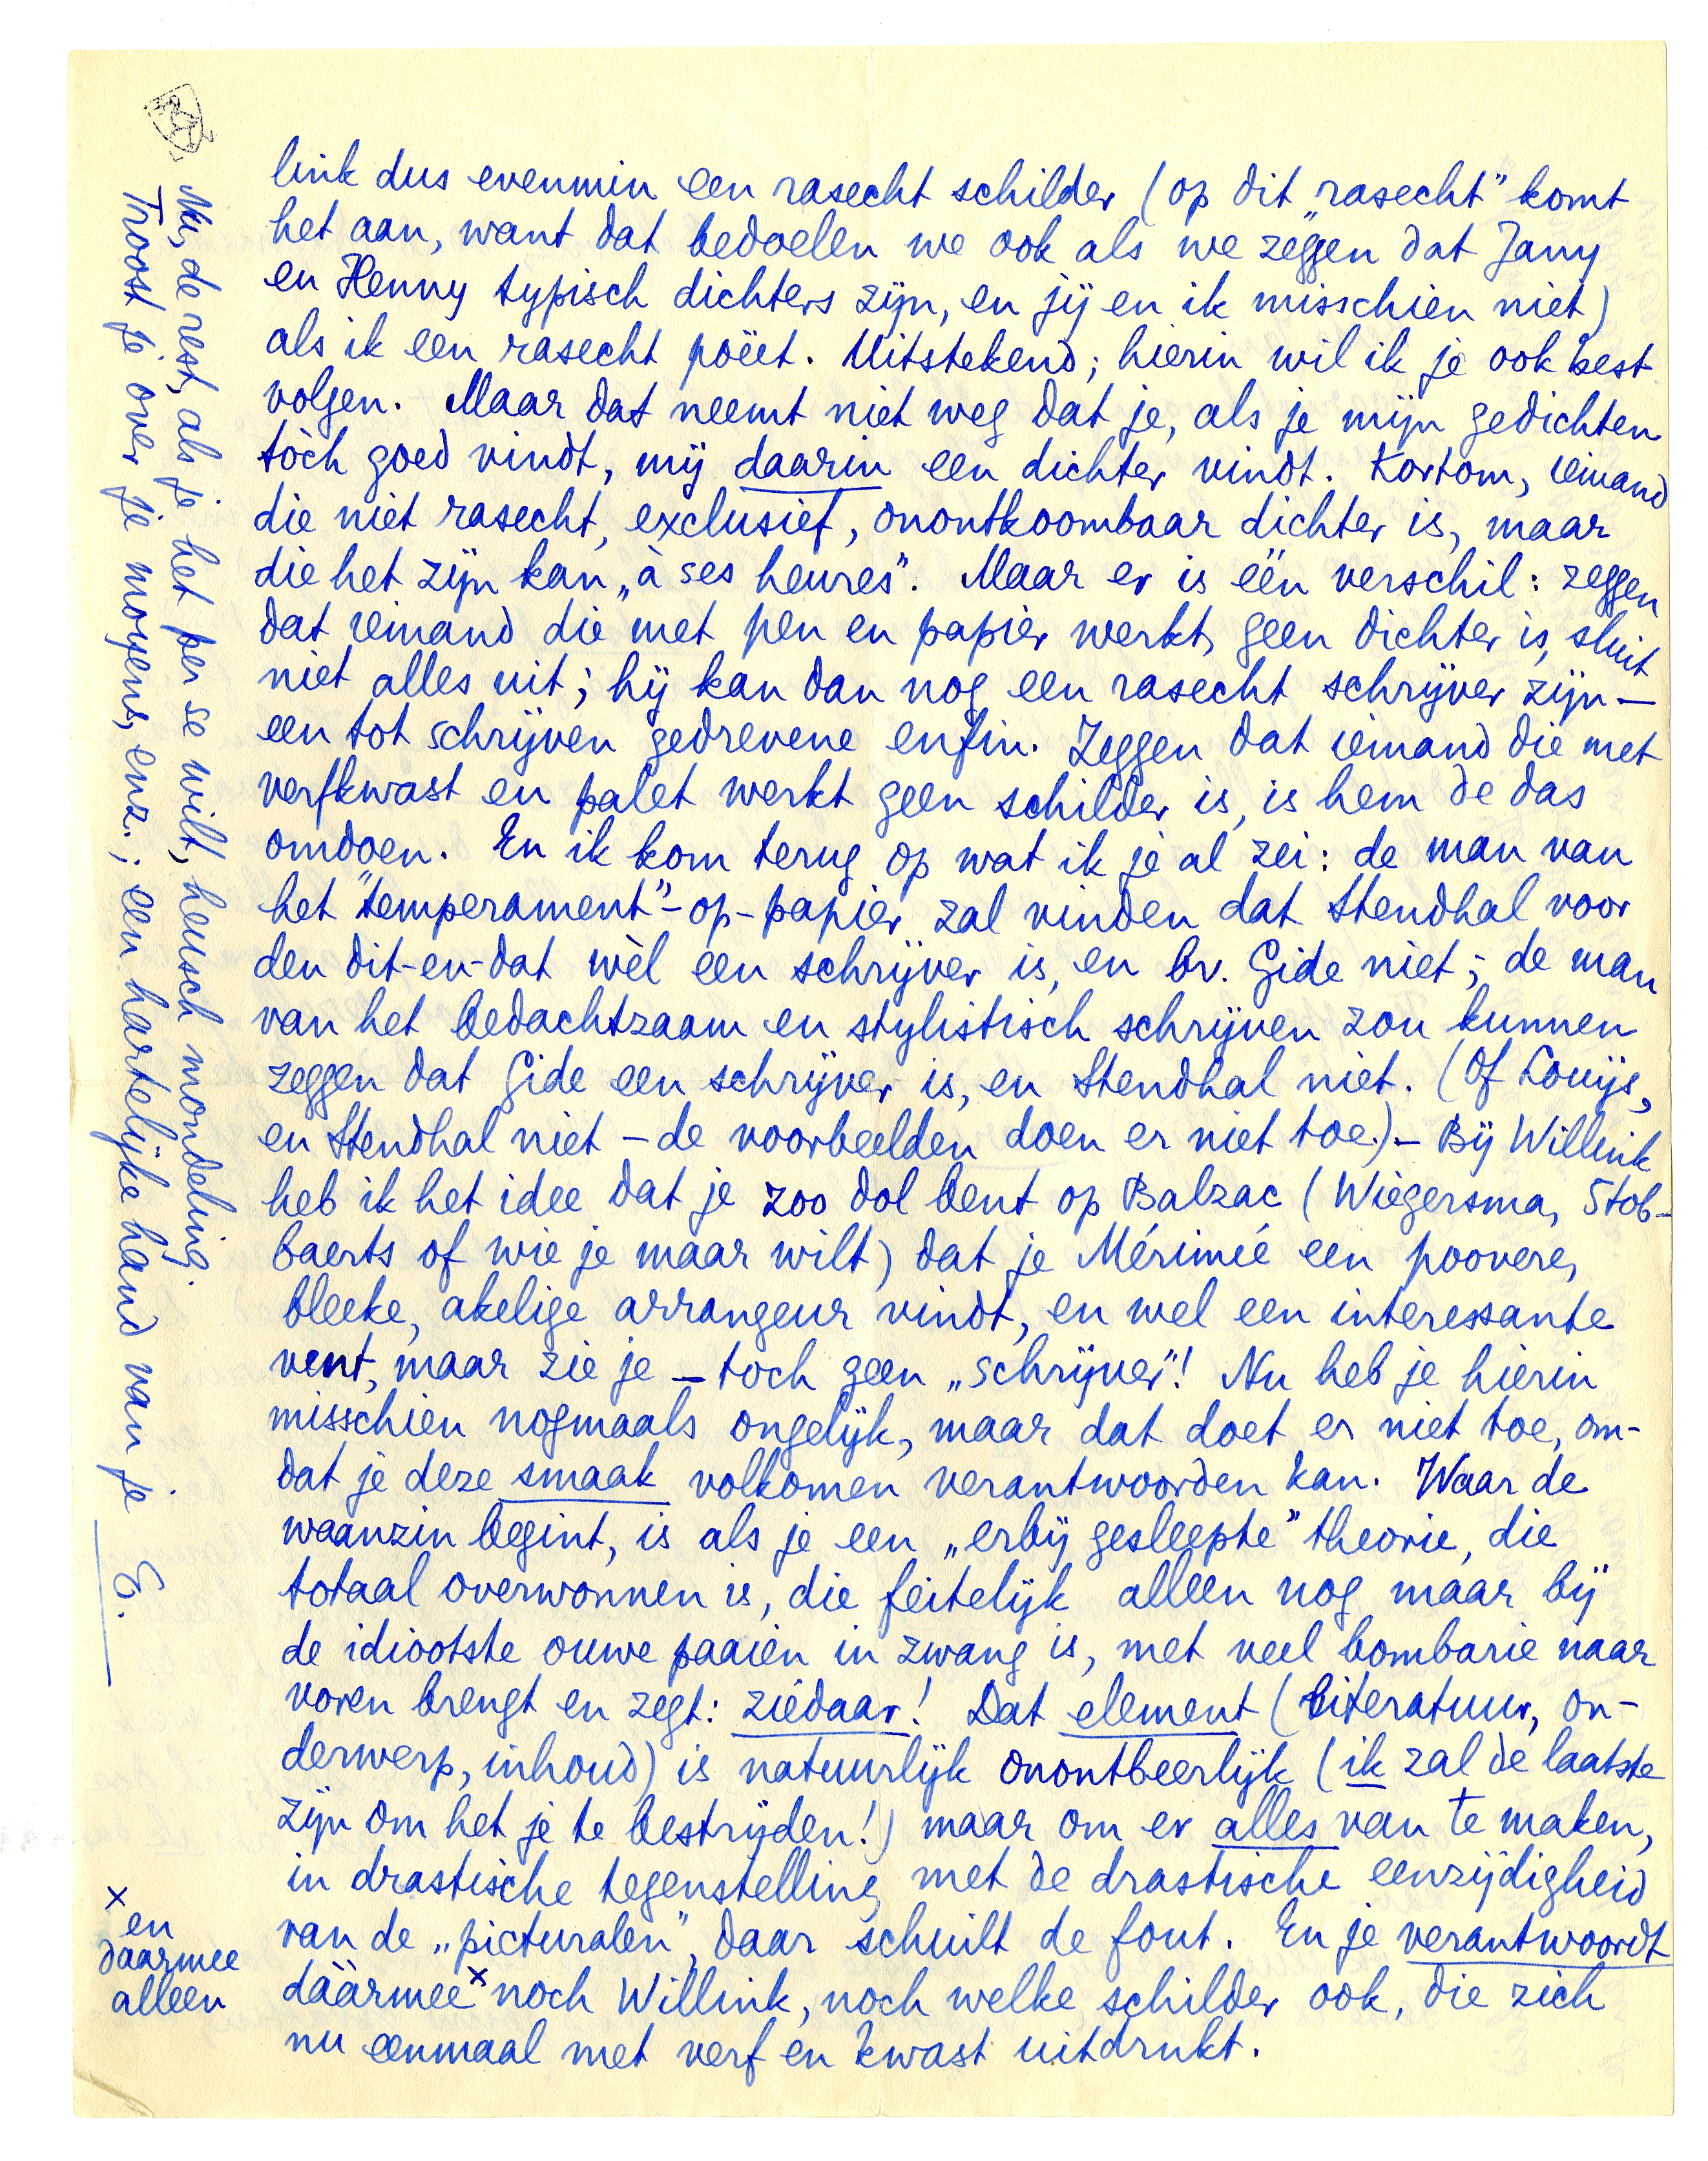 link dus evenmin een rasecht schilder (op dit „rasecht” komt
het aan, want dat bedoelen we ook als we zeggen dat Jany
en Henny typisch dichters zijn, en jij en ik misschien niet)
als ik een rasecht poëet. Uitstekend; hierin wil ik je ook best
volgen. Maar dat neemt niet weg dat je, als je mijn gedichten
tòch goed vindt, mij daarin een dichter vindt. Kortom, iemand
die niet rasecht, exclusief, onontkoombaar dichter is, maar
die het zijn kan „à ses heures”. Maar er is één verschil: zeggen
dat iemand die met pen en papier werkt, geen dichter is, sluit
niet alles uit; hij kan dan nog een rasecht schrijver zijn —
een tot schrijven gedrevene enfin. Zeggen dat iemand die met
verfkwast en palet werkt geen schilder is, is hem de das
omdoen. En ik kom terug op wat ik je al zei: de man van
het "temperament"-op-papier zal vinden dat Stendhal voor
den dit-en-dat wèl een schrijver is, en bv. Gide niet; de man
van het bedachtzaam en stylistisch schrijven zou kunnen
zeggen dat Gide een schrijver is, en Stendhal niet. (Of Louÿs,
en Stendhal niet – de voorbeelden doen er niet toe.) – Bij Willink
heb ik het idee dat je zoo dol bent op Balzac (Wiegersma, Stob-
baerts of wie je maar wilt) dat je Mérimée een poovere,
bleeke, akelige arrangeur vindt, en wel een interessante
vent, maar zie je – toch geen „schrijver”! Nu heb je hierin
misschien nogmaals ongelijk, maar dat doet er niet toe, om-
dat je deze smaak volkomen verantwoorden kan. Waar de
waanzin begint, is als je een „erbij gesleepte” theorie, die
totaal overwonnen is, die feitelijk alleen nog maar bij
de idiootste ouwe paaien in zwang is, met veel bombarie naar
voren brengt en zegt: ziedaar! Dat element (literatuur, on-
derwerp, inhoud) is natuurlijk onontbeerlijk (ik zal de laatste
zijn om het je te bestrijden!) maar om er alles van te maken,
in drastische tegenstelling met de drastische eenzijdigheid
van de „picturalen”, daar schuilt de fout. En je verantwoordt
dáármee x noch Willink, noch welke schilder ook, die zich
nu eenmaal met verf en kwast uitdrukt.
x en
daarmee
alleen
Nu, de rest, als je het per se wilt, heusch mondeling.
Troost je over je moyens, enz.; een hartelijke hand van je E.